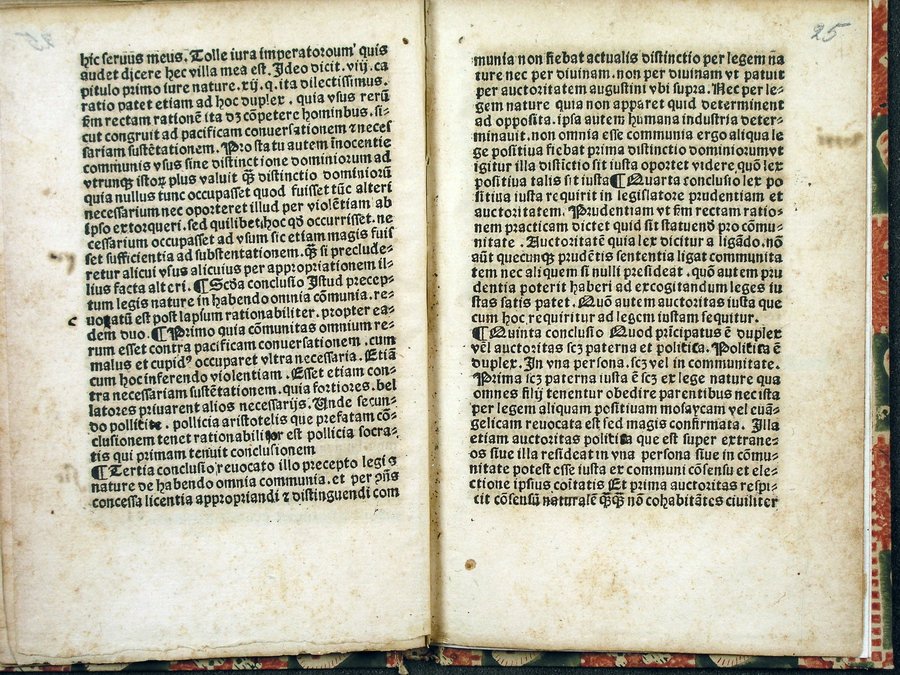 hic seruus meus. Tolle iura imperatoroum' quis
audet dicere hec villa mea est. Ideo dicit. viij. ca
pitulo primo iure nature. xij. q. ita dilectissimus.
ratio patet etiam ad hoc duplex. quia vsus rerū
ẜm rectam rationē ita dꝫ cōpetere hominbus. si⸗
cut congruit ad pacificam conuersationem ⁊ neces
sariam sustētationem. Pro statu autem īnocentie
communis vsus sine distinctione dominiorum ad
vtrunqꝫ istoꝝ plus valuit qꝫ distinctio dominiorū
quia nullus tunc occupasset quod fuisset tūc alteri
necessarium nec oporteret illud per violētiam ab
ipso extorqueri. sed quilibet hoc qđ occurrisset. ne
cessarium occupasset ad vsum sic etiam magis fuis
set sufficientia ad substentationem. qꝫ si preclude⸗
retur alicui vsus alicuius per appropriationem il⸗
lius facta alteri. ¶ Scďa conclusio Istud precep⸗
tum legis nature in habendo omnia cōmunia. re⸗
uocatū est post lapsum rationabiliter. propter ea⸗
dem duo. ¶ Primo quia cōmunitas omnium re⸗
rum esset contra pacificam conuersationem. cum
malus et cupidꝰ occuparet vltra necessaria. Etiā
cum hoc inferendo violentiam. Esset etiam con⸗
tra necessariam sustētationem. quia fortiores. bel
latores priuarent alios necessarijs. Unde secun⸗
do pollitice. pollicia aristotelis que prefatam cō⸗
clusionem tenet rationabilior est pollicia socra⸗
tis qui primam tenuit conclusionem
¶ Tertia conclusio reuocato illo precepto legis
nature de habendo omnia communia. et per 
concessa licentia appropriandi ⁊ distinguendi com
25
munia non fiebat actualis distinctio per legem na
ture nec per diuinam. non per diuinam vt patuit
per auctoritatem augustini vbi supra. Nec per le⸗
gem nature quia non apparet quid determinent
ad opposita. ipsa autem humana industria deter⸗
minauit. non omnia esse communia ergo aliqua le
ge positiua fiebat prima distinctio dominiorum vt
igitur illa distīctio sit iusta oportet videre quō lex
positiua talis sit iusta ¶ Quarta conclusio lex po
sitiua iusta requirit in legislatore prudentiam et
auctoritatem. Prudentiam vt ẜm rectam ratio⸗
nem practicam dictet quid sit statuendo pro cōmu⸗
nitate. Auctoritatē quia lex dicitur a ligādo. nō
aūt quecunqꝫ prudētis sententia ligat communita
tem nec aliquem si nulli presideat. quō autem pru
dentia poterit haberi ad excogitandum leges iu
stas satis patet. Quō autem auctoritas iusta que
cum hoc requiritur ad legem iustam sequitur.
¶ Quinta conclusio Quod prīcipatus ē duplex
vel auctoritas scꝫ paterna et politica. Politica ē
duplex. In vna persona. scꝫ vel in communitate.
Prima scꝫ paterna iusta ē scꝫ ex lege nature qua
omnes filij tenentur obedire parentibus nec ista
per legem aliquam positiuam mosaycam vel euā⸗
gelicam reuocata est sed magis confirmata. Illa
etiam auctoritas politica que est super extrane⸗
os siue illa resideat in vna persona siue in cōmu⸗
nitate potest esse iusta ex communi cōsensu et ele⸗
ctione ipsius cōitatis Et prima auctoritas respi⸗
cit cōsensū naturalē qꝫqꝫ nō cohabitātes ciuiliter